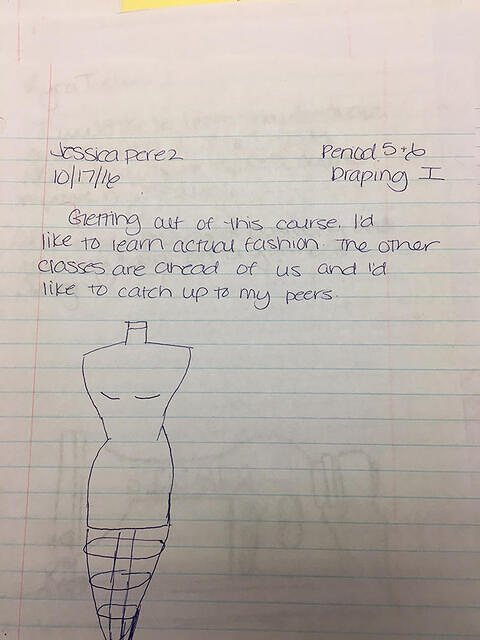 Jessica perez
Period 5+6
10/17/16
Draping I
Getting out of this course, I'd
like to learn actual fashion. The other
classes are ahead of us and I'd
like to catch up to my peers.